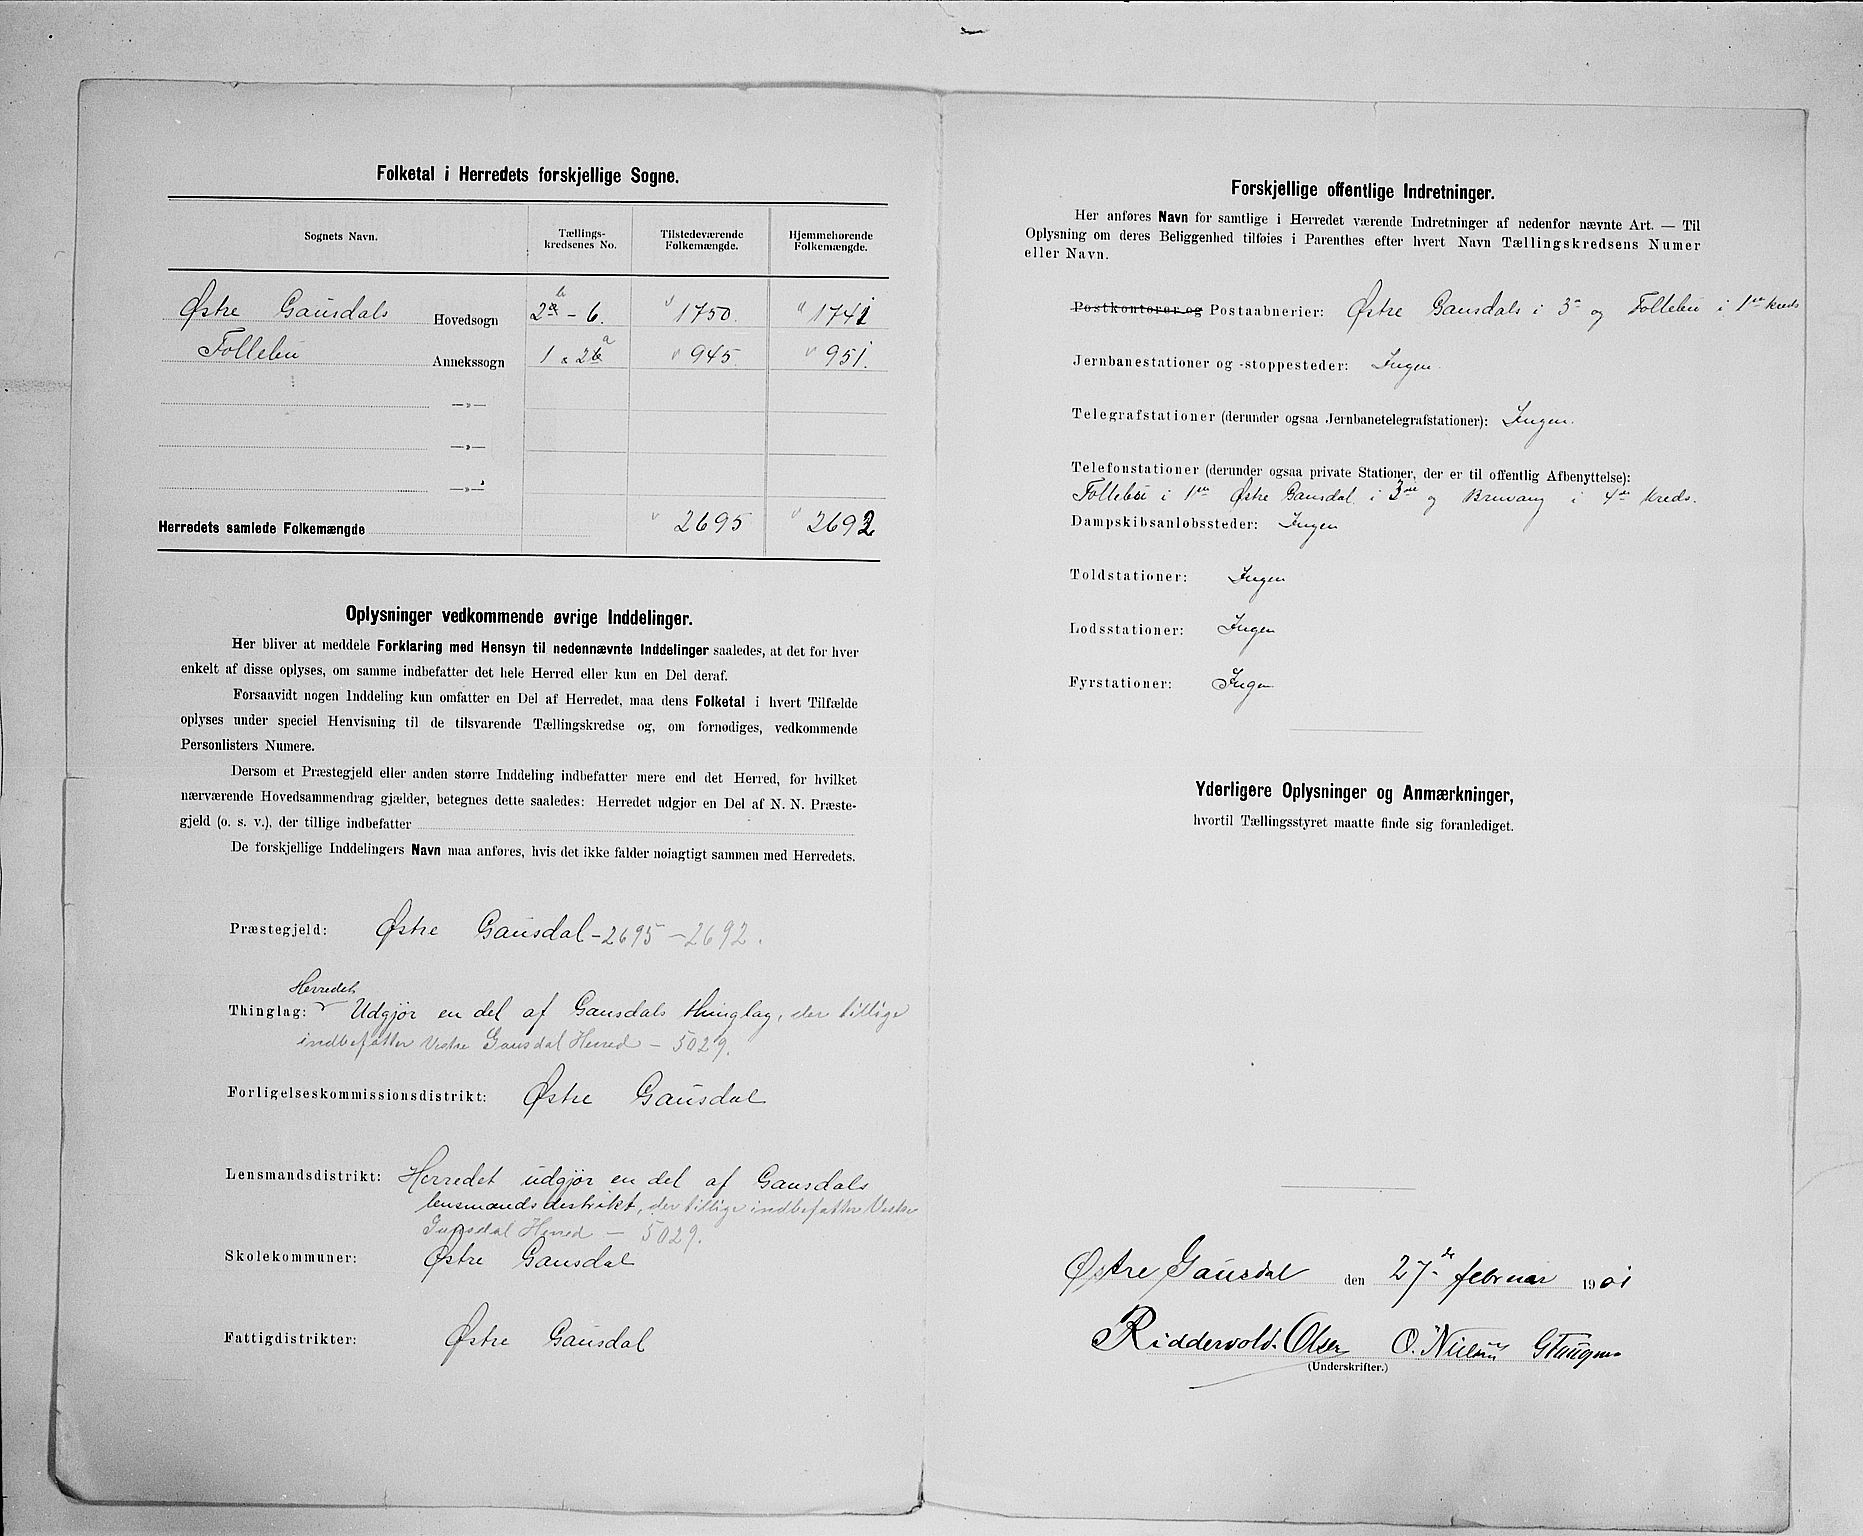 Folketal i Herredets forskjellige Sogne.
Sognets Navn. Tællings-kredsenes No. Tilstedeværende Folkemængde. Hjemmehørende Folkemængde.
Østre Gausdals Hovedsogn 2b - 6. 1750. 1741
Follebu Annekssogn 1 & 2a 945. 951.
—»—
—»—
—»—
Herredets samlede Folkemængde 2695 2692
Oplysninger vedkommende øvrige Inddelinger.
Her bliver at meddele Forklaring med Hensyn til nedennævnte Inddelinger saaledes, at det for hver
enkelt af disse oplyses, om samme indbefatter det hele Herred eller kun en Del deraf.
Forsaavidt nogen Inddeling kun omfatter en Del af Herredet, maa dens Folketal i hvert Tilfælde
oplyses under speciel Henvisning til de tilsvarende Tællingskredse og, om fornødiges, vedkommende
Personlisters Numere.
Dersom et Præstegjeld eller anden større Inddeling indbefatter mere end det Herred, for hvilket
nærværende Hovedsammendrag gjælder, betegnes dette saaledes: Herredet udgjør en Del af N. N. Præste-
gjeld (o. s. v.), der tillige indbefatter
De forskjellige Inddelingers Navn maa anføres, hvis det ikke falder nøiagtigt sammen med Herredets.
Præstegjeld: Østre Gausdal - 2695 - 2692.
Herredet
Thinglag: Udgjør en del af Gausdals thinglag, der tillige
indbefatter Vestre Gausdal Herred — 5029.
Forligelseskommissionsdistrikt: Østre Gausdal
Lensmandsdistrikt: Herredet udgjør en del af Gausdals
lensmandsdistrikt, der tillige indbefatter Vestre
Gausdal Herred — 5029.
Skolekommuner: Østre Gausdal
Fattigdistrikter: Østre Gausdal
Forskjellige offentlige Indretninger.
Her anføres Navn for samtlige i Herredet værende Indretninger af nedenfor nævnte Art. — Til
Oplysning om deres Beliggenhed tilføies i Parenthes efter hvert Navn Tællingskredsens Numer
eller Navn.
Postkontorer og Postaabnerier: Østre Gausdals i 3 og Follebu i 1ste kreds
Jernbanestationer og -stoppesteder: Ingen.
Telegrafstationer (derunder ogsaa Jernbanetelegrafstationer): Ingen.
Telefonstationer (derunder ogsaa private Stationer, der er til offentlig Afbenyttelse):
Follebu i 1ste Østre Gausdal i 3die og Bruvang i 4de kreds.
Dampskibsanløbssteder: Ingen
Toldstationer: Ingen
Lodsstationer: Ingen
Fyrstationer: Ingen
Yderligere Oplysninger og Anmærkninger,
hvortil Tællingsstyret maatte finde sig foranlediget.
Østre Gausdal den 27de februar 1901
Riddervold Olsen O. Nielsen
(Underskrifter.)